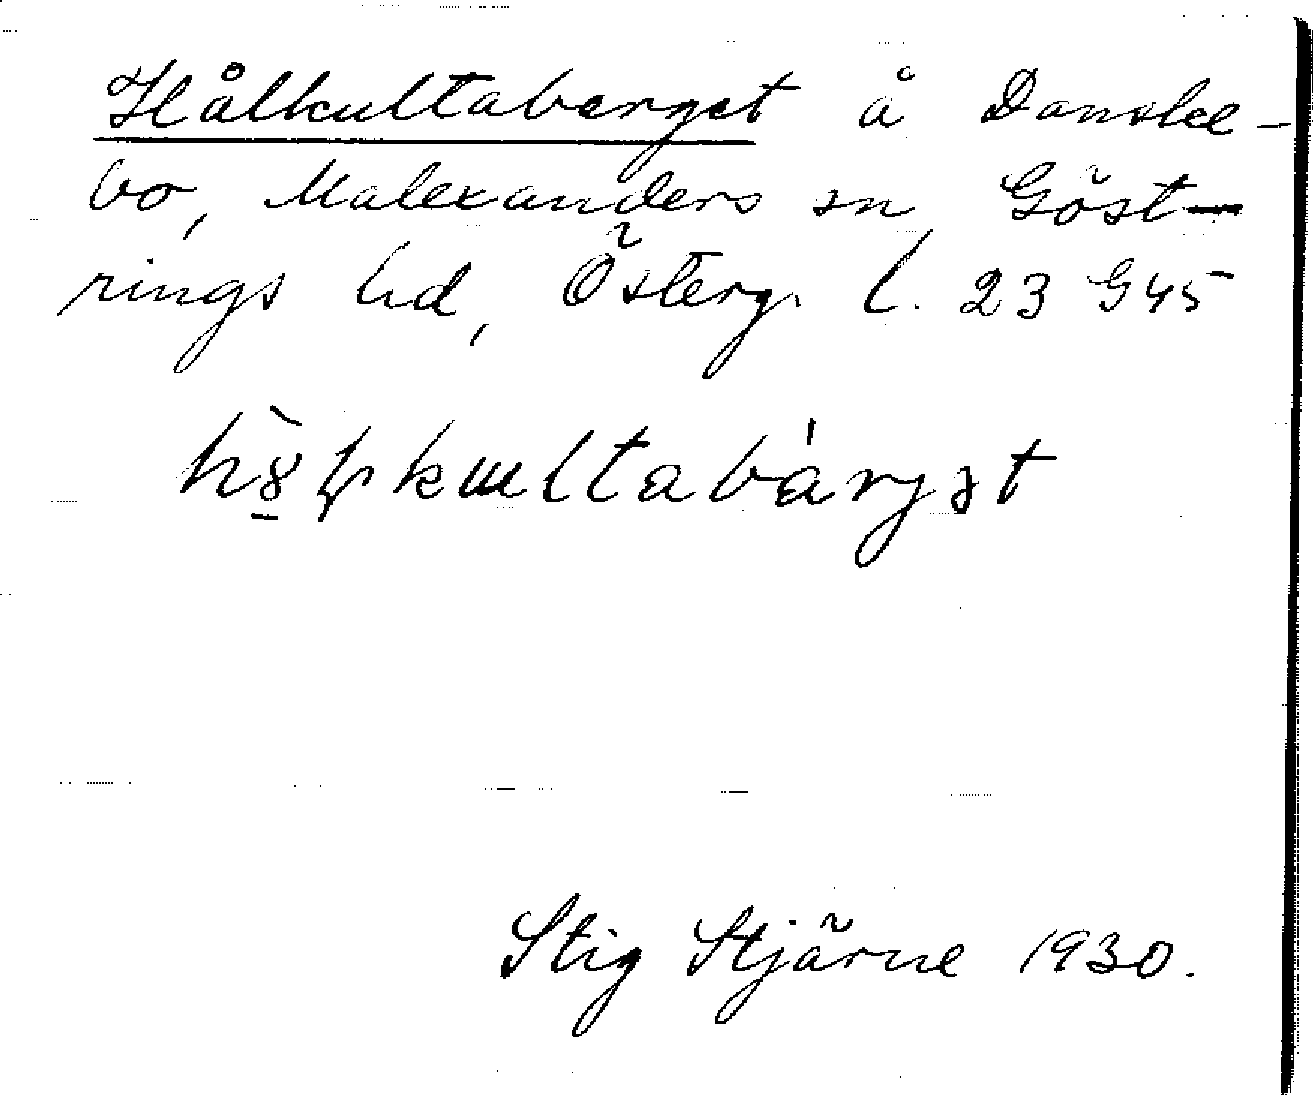 Hålkultaberget å Danske-
bo, Malexanders sn, Göst-
rings hd, Österg. l. 23 G45
Stig Stjärne 1930.